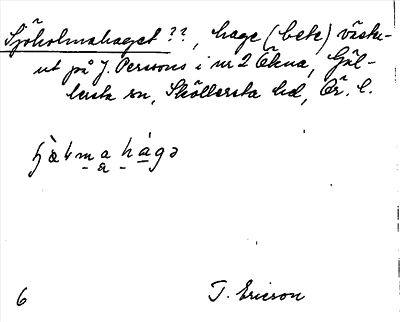 Sjöholmahaget ??, hage (bete) väster-
ut på J. Perssons i nr 2 Ökna, Gäl-
lersta sn, Sköllersta hd, Ör. l.
hage
6 T. Ericson